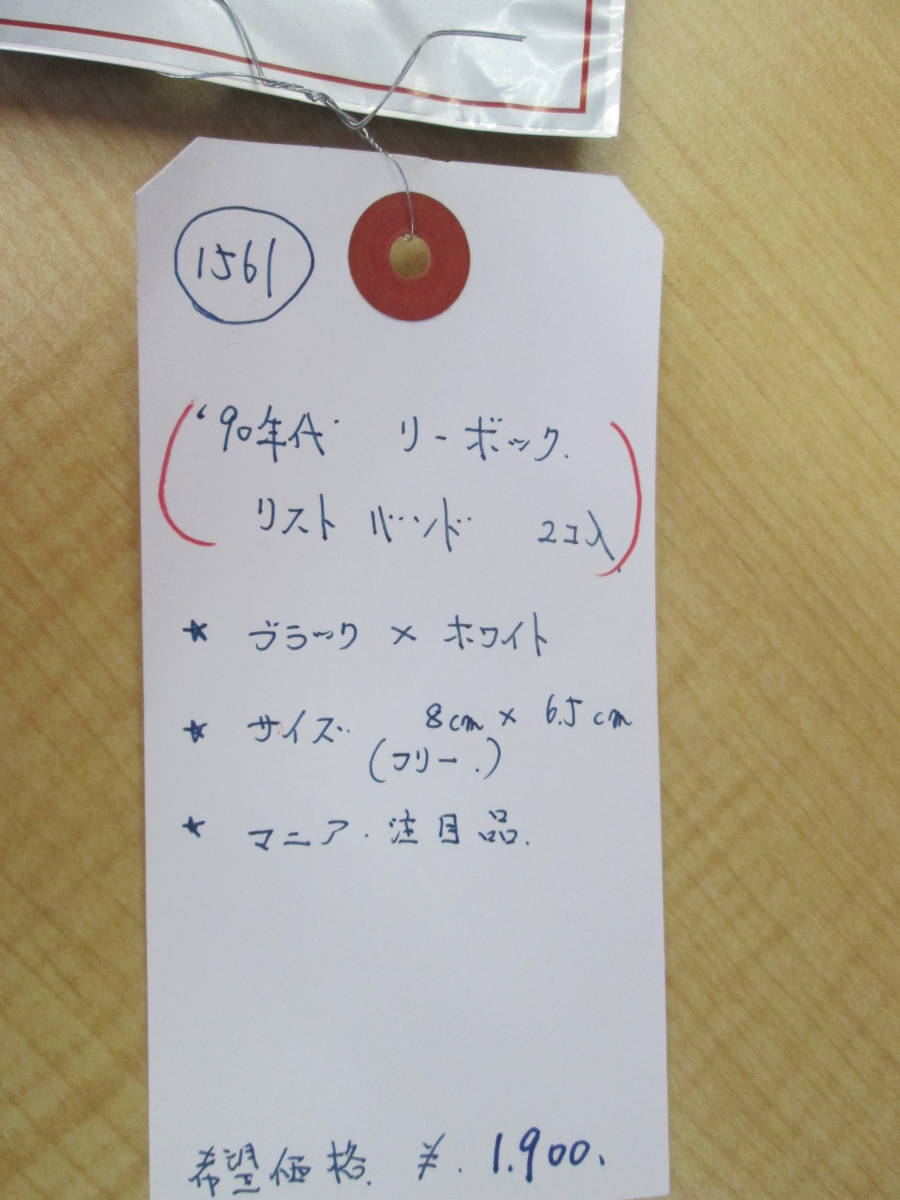 1561
'90年代 リーボック.
リストバンド 2コ入
★ ブラック × ホワイト
★ サイズ 8cm × 6.5cm
(フリー.)
★ マニア・注目品.
希望価格. ¥. 1.900.